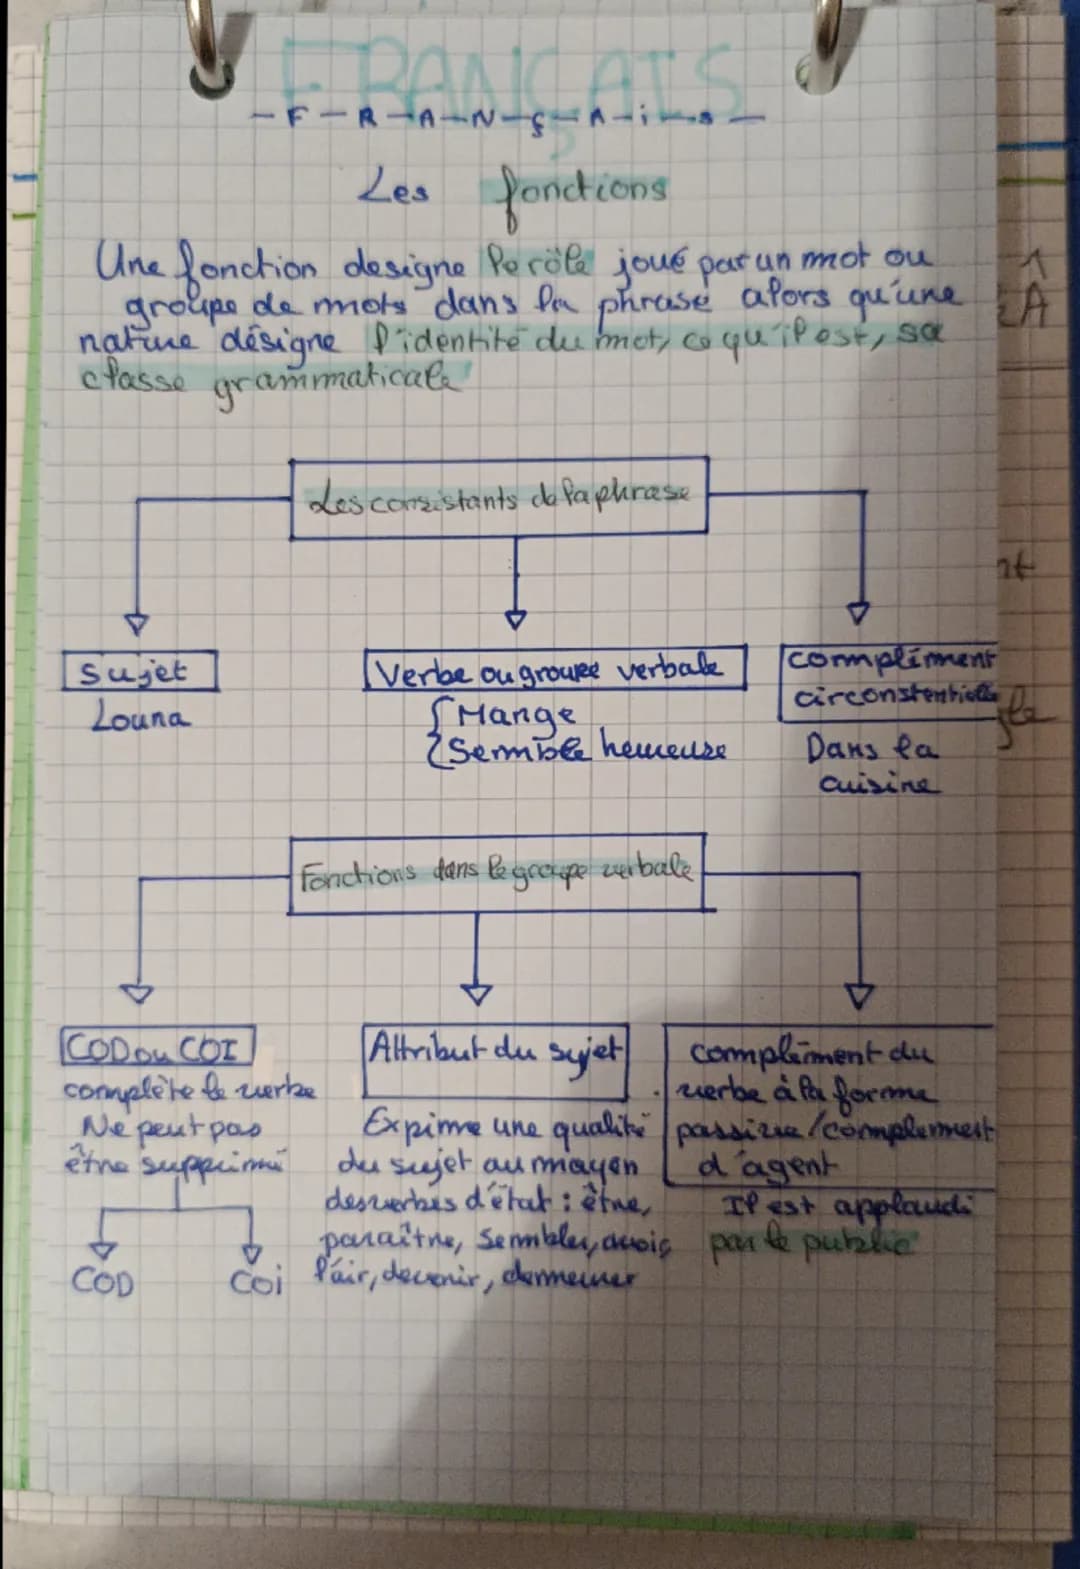 FRANÇAIS
- F - R - A - N - ç - A - i - s -
Les fonctions
Une fonction designe le rôle joué par un mot ou
groupe de mots dans la phrase alors qu'une
nature désigne l'identité du mot, ce qu'il est, sa
classe grammaticale
Les consistants de la phrase
Sujet
Louna
Verbe ou groupe verbale
Mange
Semble heureuse
compliment
circonstentielle
Dans la
cuisine
Fonctions dans le groupe verbale
COD ou COI
complète le verbe
Ne peut pas
être supprimé
COD
Coi
Attribut du sujet
Expime une qualité
du sujet au moyen
des verbes d'état : être,
paraître, sembler, avoir
l'air, devenir, demeurer
complément du
verbe à la forme
passive/complement
d'agent
Il est applaudi
par le public